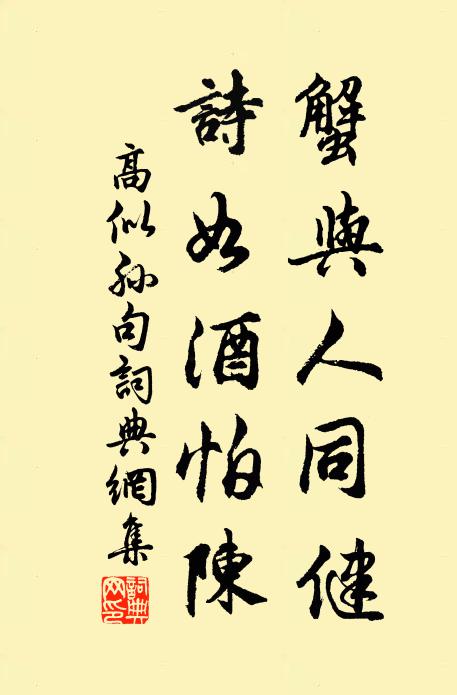 蟹與人同健
詩如酒怕陳
高似孫句詞典網集
詞典網印